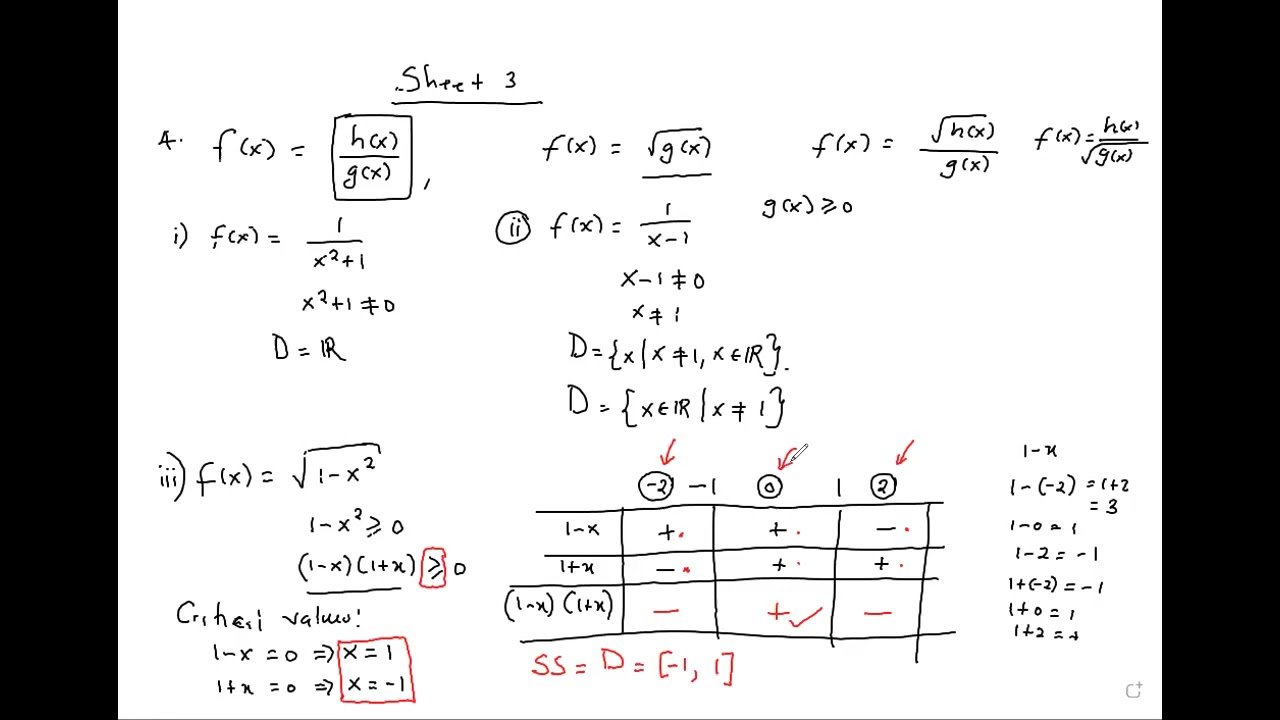 Sheet 3
4. f(x) = h(x)/g(x) , f(x) = √g(x) f(x) = √h(x)/g(x) f(x) = h(x)/√g(x)
g(x) ≥ 0
i) f(x) = 1/(x²+1)
x²+1 ≠ 0
D = ℝ
ii) f(x) = 1/(x-1)
x-1 ≠ 0
x ≠ 1
D = {x | x ≠ 1, x ∈ ℝ}.
D = {x ∈ ℝ | x ≠ 1}
iii) f(x) = √(1-x²)
1-x² ≥ 0
(1-x)(1+x) ≥ 0
values:
1-x = 0 ⇒ x = 1
1+x = 0 ⇒ x = -1
-2 -1 0 1 2
1-x + + -
1+x - + +
(1-x)(1+x) - + ✓ -
SS = D = [-1, 1]
1-x
1-(-2) = 1+2
= 3
1-0 = 1
1-2 = -1
1+(-2) = -1
1+0 = 1
1+2 = +